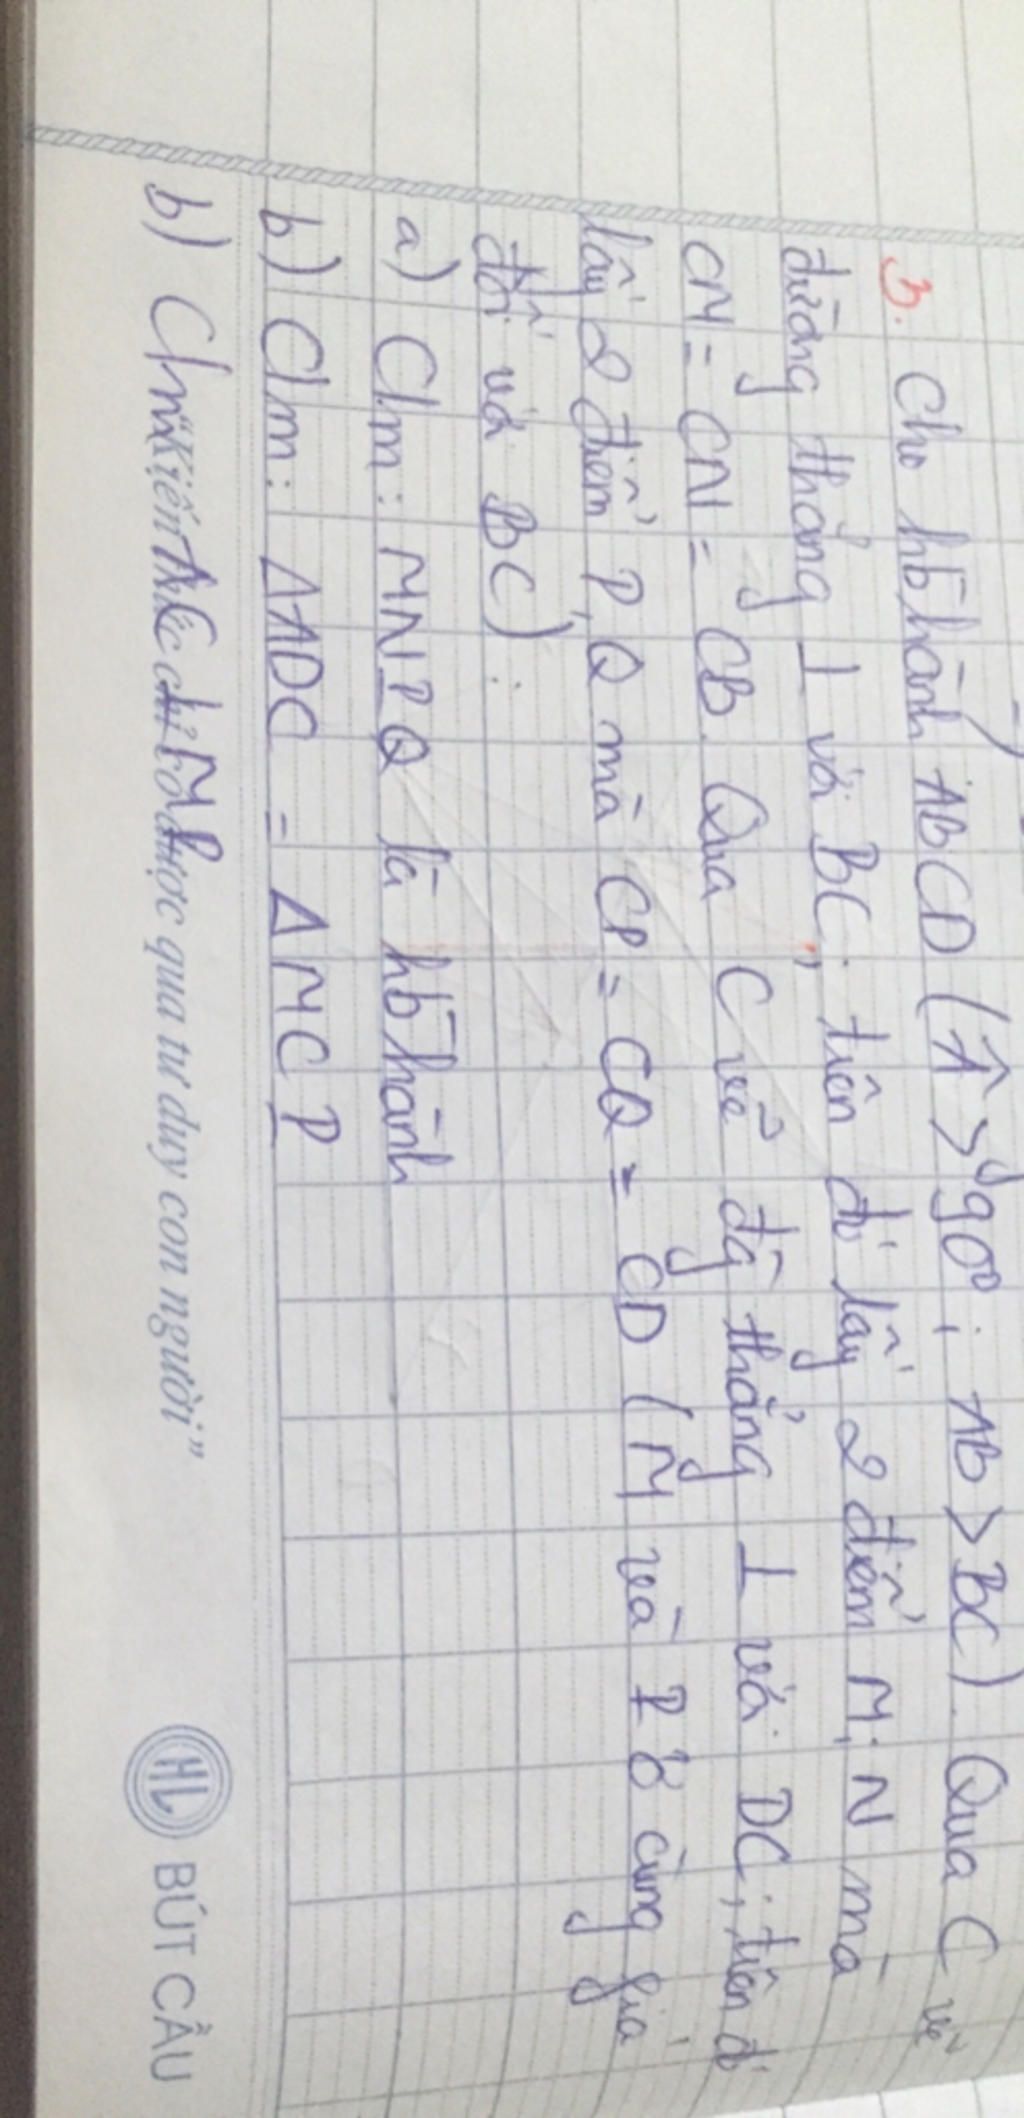 3. Cho hb̄hành ABCD (Â > 90⁰; AB > BC). Qua C vẽ
đường thẳng ⊥ với BC; trên đó lấy 2 điểm M; N mà
CM = CN = CB. Qua C vẽ đg̃ thẳng ⊥ với DC; trên đó
lấy 2 điểm P, Q mà CP = CQ = CD (M và P ở cùng phía
đối với BC):
a) C/m: MNPQ là hb̄hành
b) C/m: ΔADC = ΔMCP
b) C/m: AC ⊥ MP
"Kiến thức chỉ có được qua tư duy con người"
HL BÚT CẦU